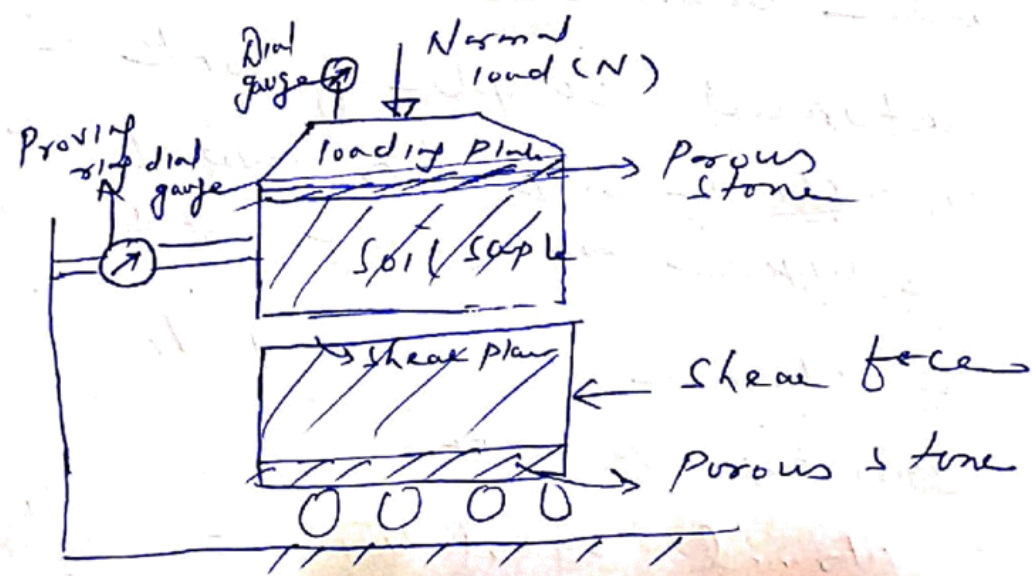 Dial
gauge
Normal
load (N)
Proving
ring dial
gauge
loading plate
Porous
stone
Soil sample
shear plane
Shear force
porous stone